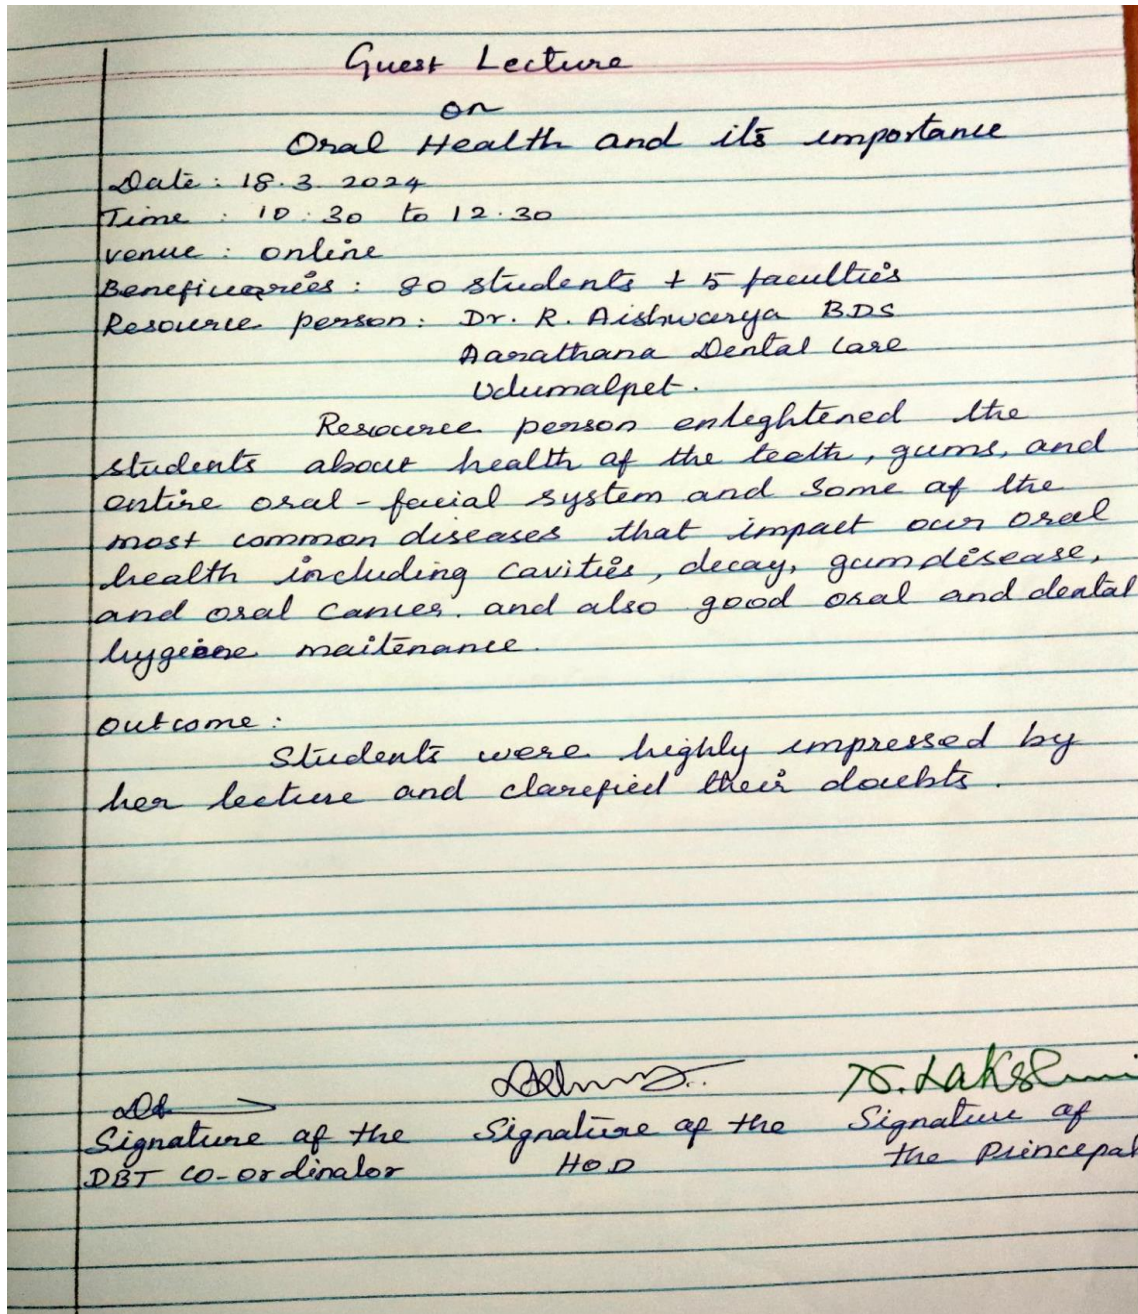 Guest Lecture
on
Oral Health and its importance
Date : 18.3.2024
Time : 10:30 to 12.30
venue : online
Beneficiaries : 80 students + 5 faculties
Resource person : Dr. R. Aishwarya BDS
Aarathana Dental Care
Udumalpet.
Resource person enlightened the
students about health of the teeth, gums, and
entire oral-facial system and some of the
most common diseases that impact our oral
health including cavities, decay, gum disease,
and oral cancer. and also good oral and dental
hygiene maitenance.
outcome :
Students were highly impressed by
her lecture and clarified their doubts.
N. Lakshmi
Signature of the Signature of the Signature of
DBT co-ordinator HOD the Principal